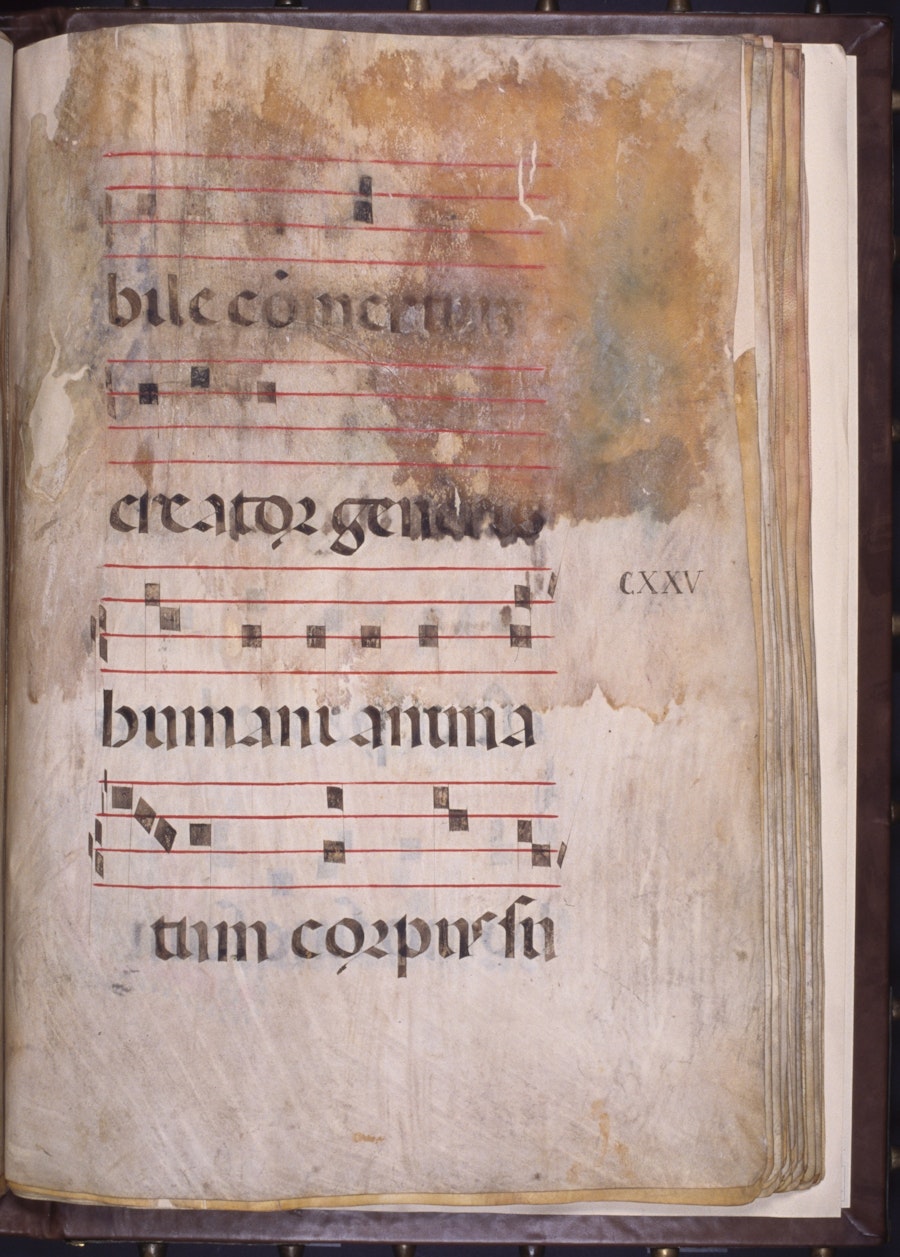 bile cȯmertium
creator generis
CXXV
humani anima
tum corpus su